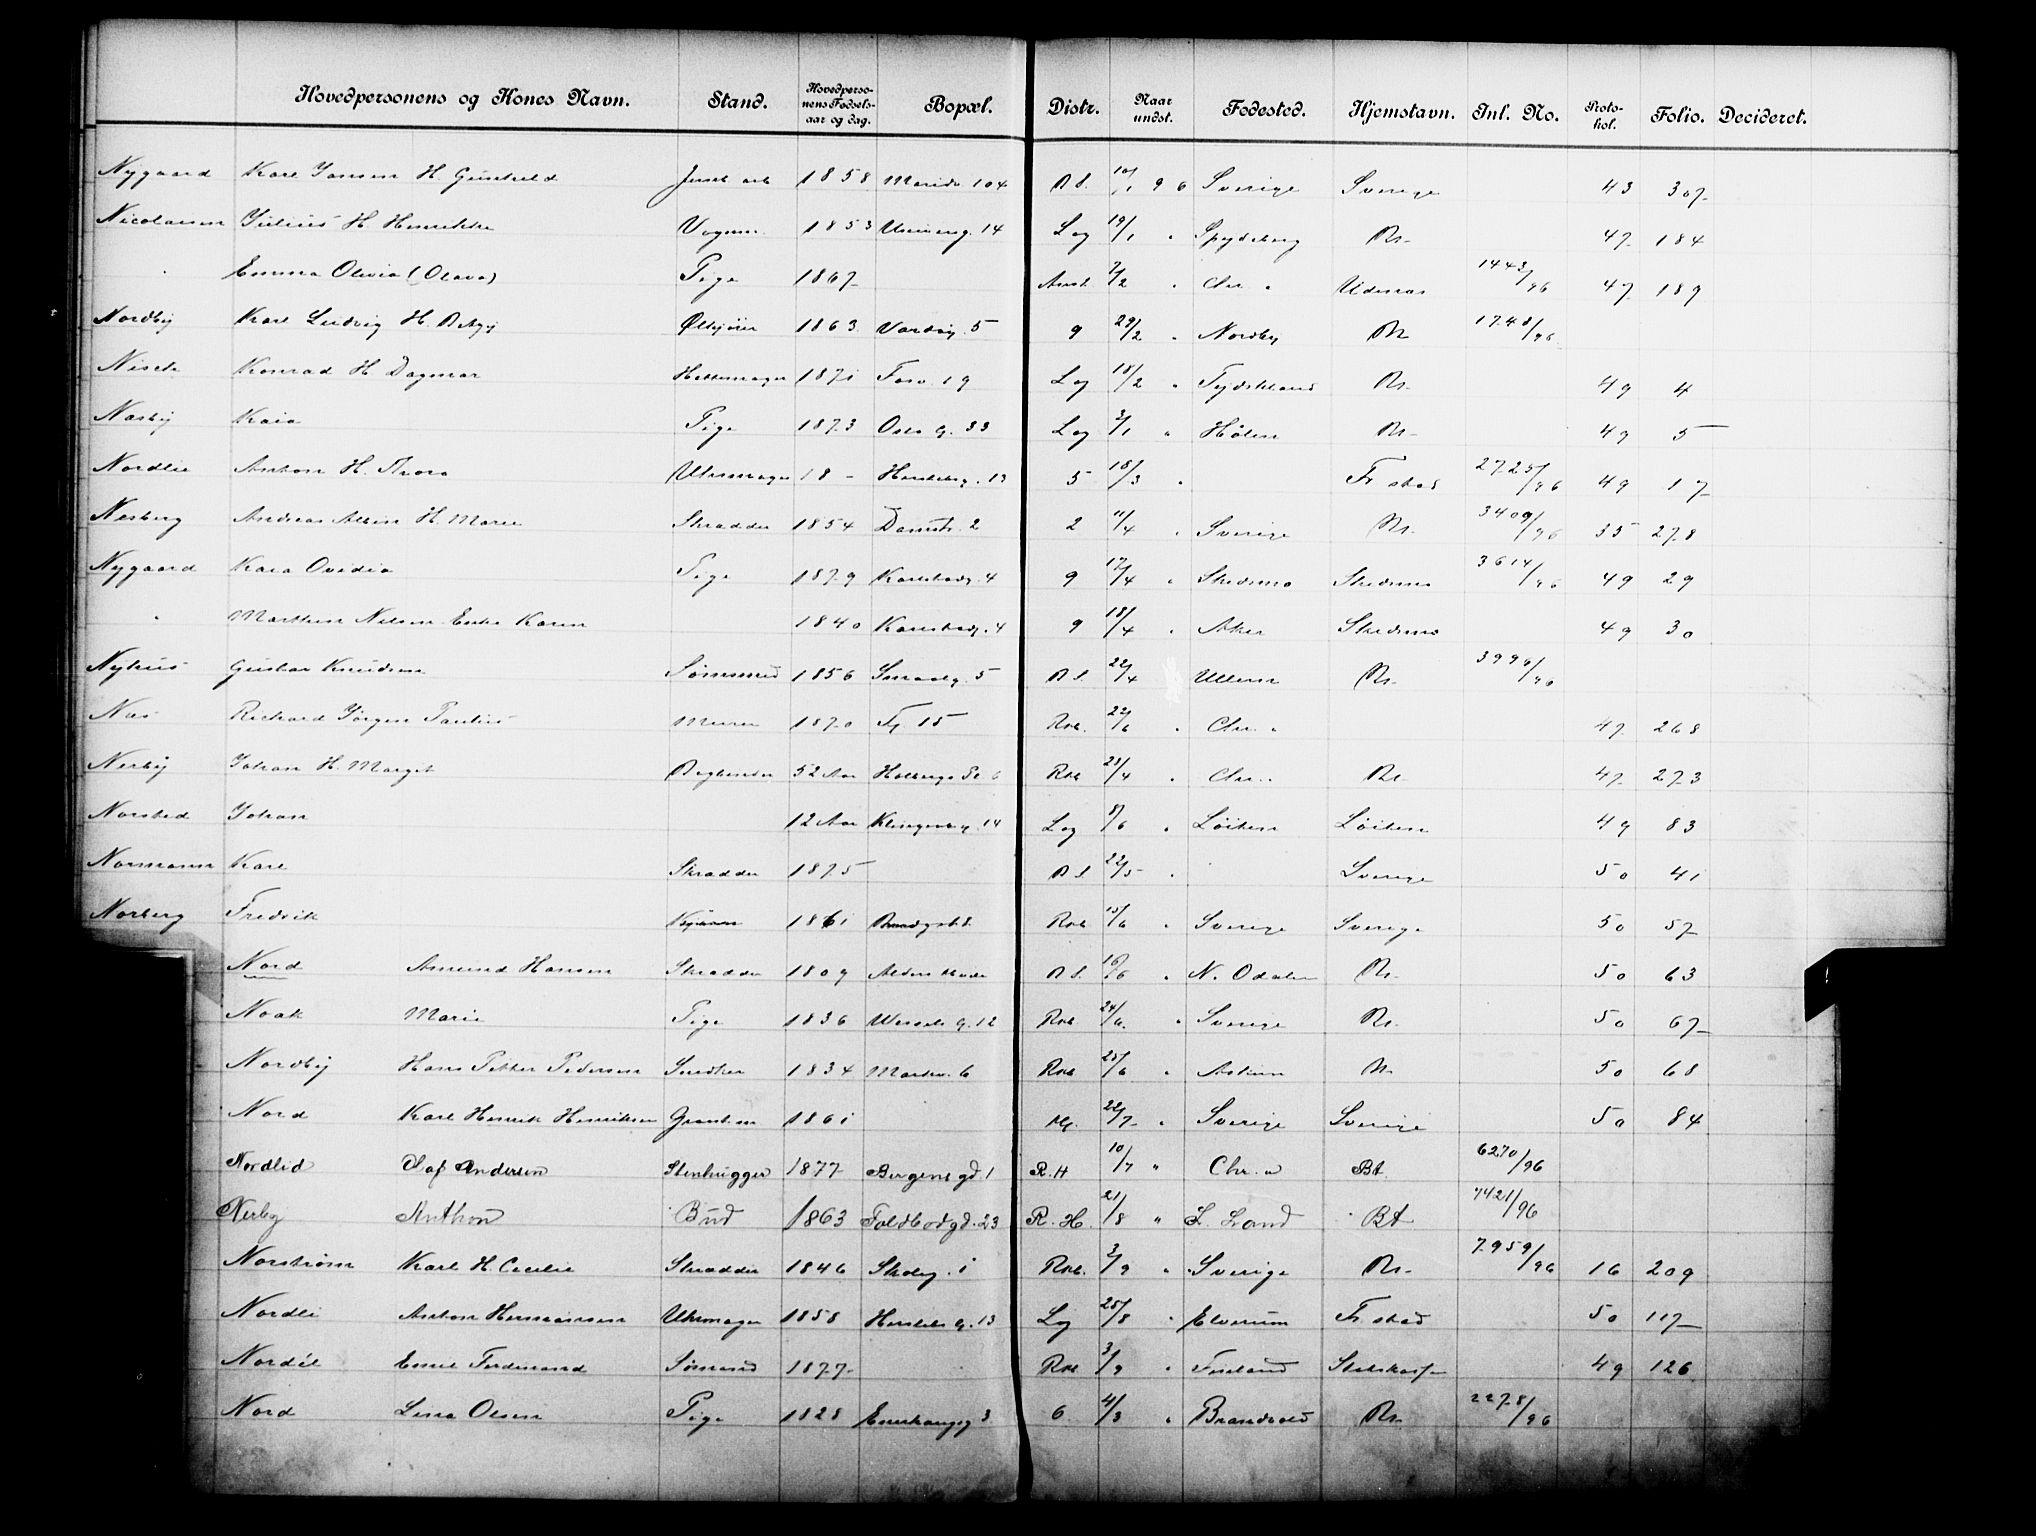 Hovedpersonens og Kones Navn. Stand. Hovedpersonens Fødselsaar og dag. Bopæl. Distr. Naar undst. Fødested. Hjemstavn. Inl. No. Protokol. Folio. Decideret.
Nygaard Karl Jansen H. Gunhild 1858 Maridv. 104 10/1 96 Sverige Sverige 43 307
Nicolaisen Julius H Henrikke Vognm. 1853 14 Log 19/1 " Spydeberg Bt. 47 184
" Emma Olivia (Olava) Pige 1867 7/2 " Chr. a 1443/96 47 189
Nordby Karl Ludvig H. 1863 5 9 29/2 " Nordby Bt 1748/96
Konrad H Dagmar 1871 Fosv. 19 Log 18/2 " Tydskland Bt. 49 4
Næsby Kaia Pige 1873 Oslo g. 33 Log 3/1 " Hölen Bt. 49 5
Nordlie Anton H. Thora Uhrmager 18 - Herslebsg. 13 5 18/3 " Fr stad 2725/96 49 17
Nesberg Andreas Albin H. Marie Skrædder 1854 Damstr. 2 2 11/4 " Sverige Bt. 3409/96 35 278
Nygaard Kaia Ovidia Pige 1879 Karlstadg. 4 9 17/4 " Skedsmo Skedsmo 3614/96 49 29
" Marthin Nilsen Enke Karen 1840 Karlstadg. 4 9 18/4 " Aker Skedsmo 49 30
Nyhus Gustav Knudsen Sømand 1856 Smaalg. 5 B S. 22/4 Ullern Bt. 3996/96
Næs Richard Jörgen Paulus Murer 1870 15 Rob. 22/6 " Chr. a 47 268
Nerby Johan H. Margit Bogbinder 52 Aar Holbergs Pl. 6 Rob 23/4 " Chr. a Bt. 47 273
Norsted Johan 12 Aar Klingenbg. 14 Log 8/6 " Löiten Löiten 49 83
Normann Karl Skrædder 1875 B S. 22/5 " Sverige 50 41
Norberg Fredrik 1861 Rob 15/6 " Sverige Sverige 50 57
Nord Amund Hansen Skrædder 1809 B S. 16/6 " N. Odalen Bt. 50 63
Noak Marie Pige 1836 Wessels g. 12 Rob 24/6 " Sverige Bt. 50 67
Nordby Hans Petter Pedersen Snedker 1834 Markv. 6 Rob 25/6 " Askim Bt. 50 68
Nord Karl Henrik Henriksen 1861 22/7 " Sverige Sverige 50 84
Nordlid Olaf Andersen Stenhugger 1877 Bergens gd. 1 R. H 10/7 " Chr. a Bt. 6270/96
Nerby Anthon Bud 1863 Toldbodgd. 23 R. H. 21/8 " S. Land Bt 7421/96
Norström Karl H. Cecilie Skrædder 1846 Skoleg. 1 Rob. 3/9 " Sverige Bt. 7959/96 16 209
Nordli Anton Hermansen Uhrmager 1858 Herslebs g. 13 Log 25/8 " Elverum Fr. stad 50 117
Emil Ferdinand Sømand 1877 Rob 3/9 " Finland 49 126
Nord Lina Olsen Pige 1828 3 6 4/3 " Brandvold Bt. 2278/96